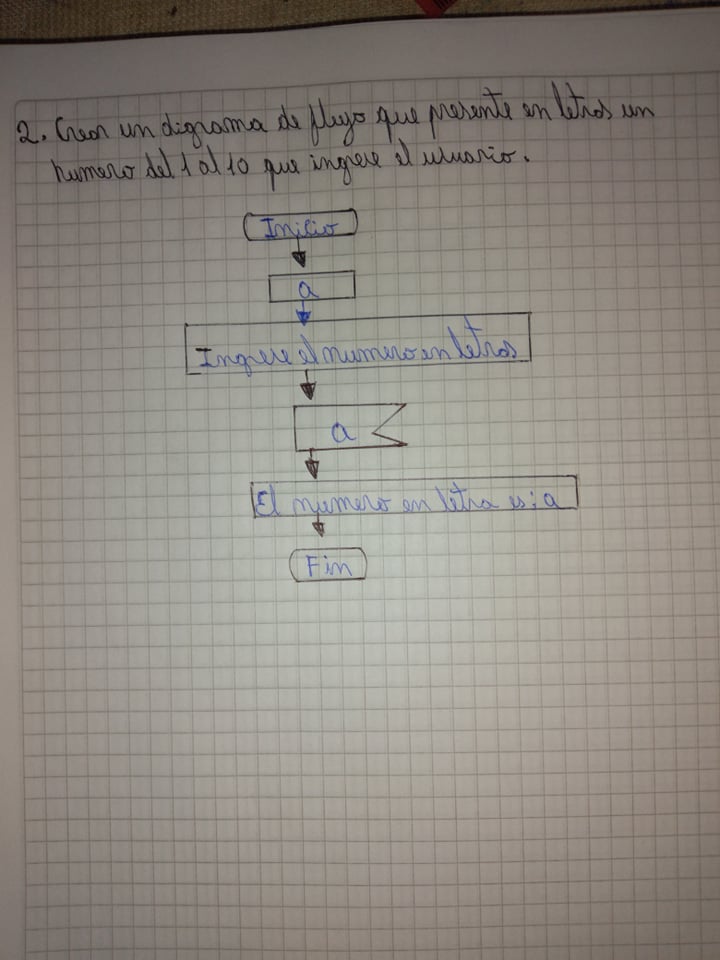 2. Crear un digrama de flujo que presente en letras un
numero del 1 al 10 que ingrese el usuario.
Inicio
a
Ingrese el numero en letras
a
El numero en letra es: a
Fin